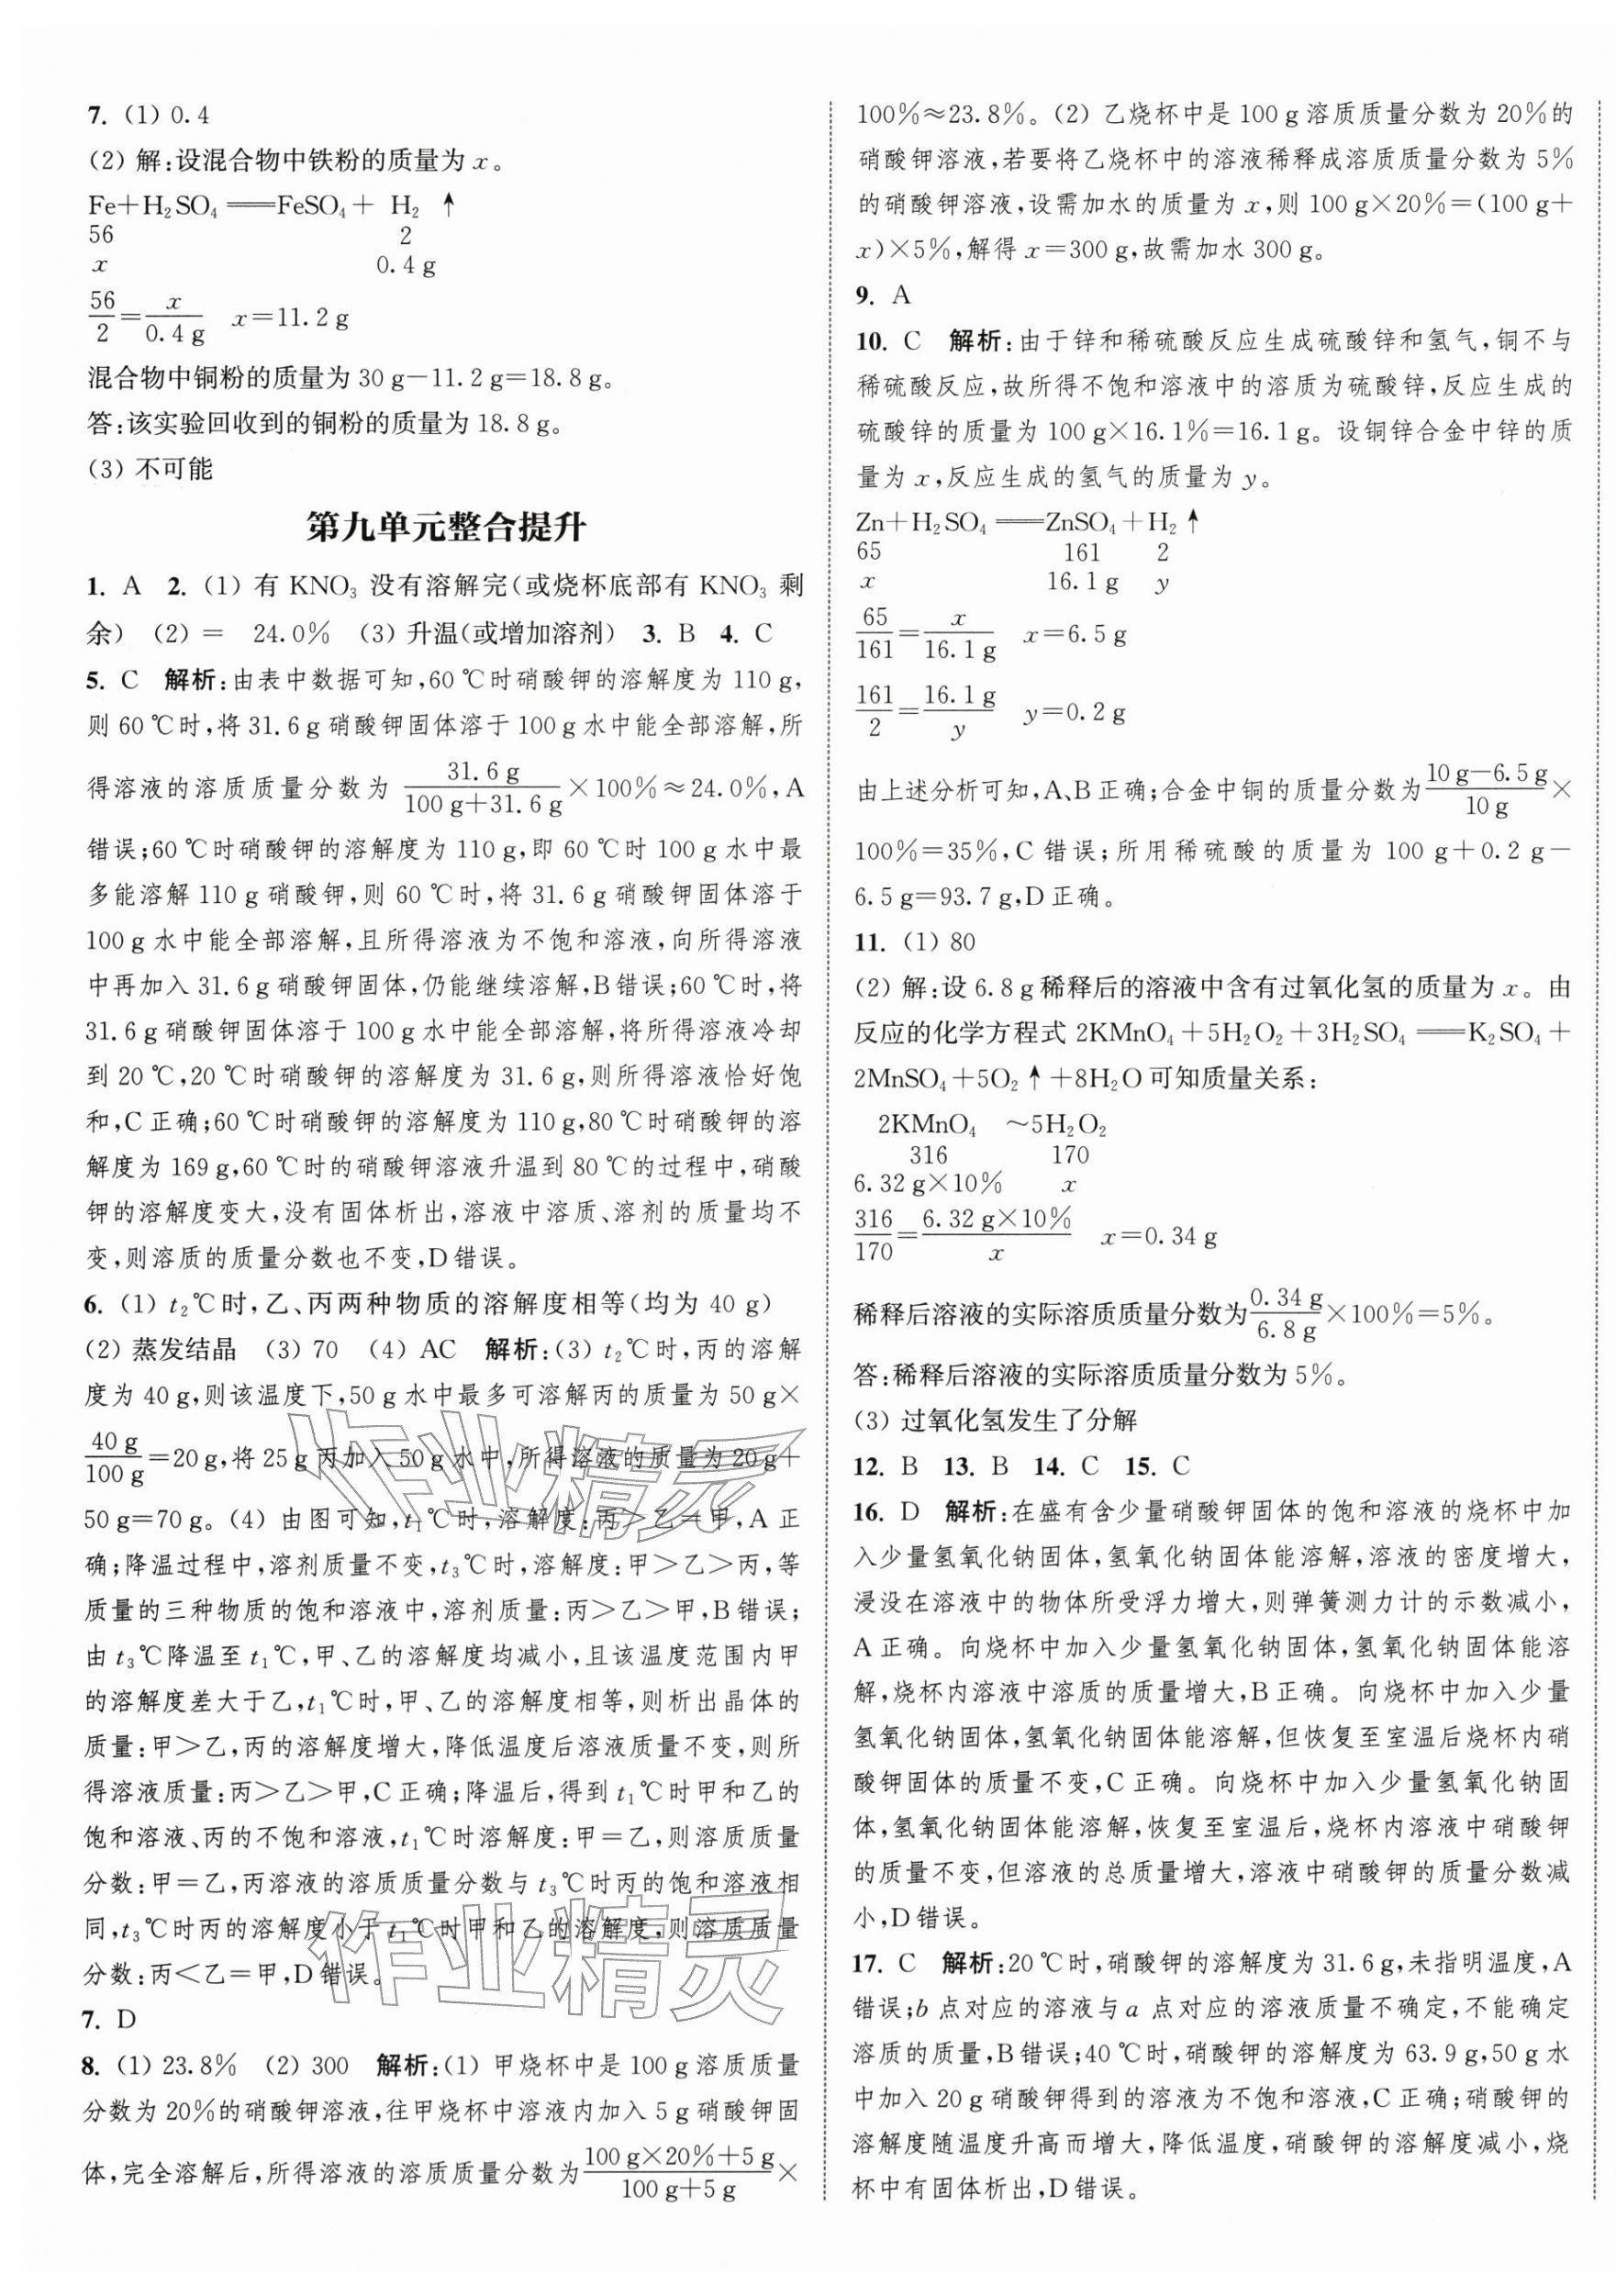 7. (1) 0.4
(2) 解:设混合物中铁粉的质量为 x。
Fe+H₂SO₄══FeSO₄+ H₂ ↑
56 2
x 0.4 g
56/2=x/0.4 g x=11.2 g
混合物中铜粉的质量为 30 g-11.2 g=18.8 g。
答:该实验回收到的铜粉的质量为 18.8 g。
(3) 不可能
第九单元整合提升
1. A 2. (1) 有 KNO₃ 没有溶解完(或烧杯底部有 KNO₃ 剩
余) (2) = 24.0% (3) 升温(或增加溶剂) 3. B 4. C
5. C 解析:由表中数据可知,60 ℃时硝酸钾的溶解度为 110 g,
则 60 ℃时,将 31.6 g 硝酸钾固体溶于 100 g 水中能全部溶解,所
得溶液的溶质质量分数为 31.6 g/(100 g+31.6 g)×100%≈24.0%,A
错误;60 ℃时硝酸钾的溶解度为 110 g,即 60 ℃时 100 g 水中最
多能溶解 110 g 硝酸钾,则 60 ℃时,将 31.6 g 硝酸钾固体溶于
100 g 水中能全部溶解,且所得溶液为不饱和溶液,向所得溶液
中再加入 31.6 g 硝酸钾固体,仍能继续溶解,B错误;60 ℃时,将
31.6 g 硝酸钾固体溶于 100 g 水中能全部溶解,将所得溶液冷却
到 20 ℃,20 ℃时硝酸钾的溶解度为 31.6 g,则所得溶液恰好饱
和,C 正确;60 ℃时硝酸钾的溶解度为 110 g,80 ℃时硝酸钾的溶
解度为 169 g,60 ℃时的硝酸钾溶液升温到 80 ℃的过程中,硝酸
钾的溶解度变大,没有固体析出,溶液中溶质、溶剂的质量均不
变,则溶质的质量分数也不变,D 错误。
6. (1) t₂℃时,乙、丙两种物质的溶解度相等(均为 40 g)
(2) 蒸发结晶 (3) 70 (4) AC 解析:(3) t₂℃时,丙的溶解
度为 40 g,则该温度下,50 g 水中最多可溶解丙的质量为 50 g×
40 g/100 g=20 g,将 25 g 丙加入 50 g 水中,所得溶液的质量为 20 g+
50 g=70 g。(4) 由图可知,t₁℃时,溶解度:丙>乙=甲,A 正
确;降温过程中,溶剂质量不变,t₃℃时,溶解度:甲>乙>丙,等
质量的三种物质的饱和溶液中,溶剂质量:丙>乙>甲,B 错误;
由 t₃℃降温至 t₁℃,甲、乙的溶解度均减小,且该温度范围内甲
的溶解度差大于乙,t₁℃时,甲、乙的溶解度相等,则析出晶体的
质量:甲>乙,丙的溶解度增大,降低温度后溶液质量不变,则所
得溶液质量:丙>乙>甲,C 正确;降温后,得到 t₁℃时甲和乙的
饱和溶液、丙的不饱和溶液,t₁℃时溶解度:甲=乙,则溶质质量
分数:甲=乙,丙溶液的溶质质量分数与 t₃℃时丙的饱和溶液相
同,t₃℃时丙的溶解度小于 t₁℃时甲和乙的溶解度,则溶质质量
分数:丙<乙=甲,D 错误。
7. D
8. (1) 23.8% (2) 300 解析:(1) 甲烧杯中是 100 g 溶质质量
分数为 20%的硝酸钾溶液,往甲烧杯中溶液内加入 5 g 硝酸钾固
体,完全溶解后,所得溶液的溶质质量分数为(100 g×20%+5 g)/(100 g+5 g)×
100%≈23.8%。(2) 乙烧杯中是 100 g 溶质质量分数为 20%的
硝酸钾溶液,若要将乙烧杯中的溶液稀释成溶质质量分数为 5%
的硝酸钾溶液,设需加水的质量为 x,则 100 g×20%=(100 g+
x)×5%,解得 x=300 g,故需加水 300 g。
9. A
10. C 解析:由于锌和稀硫酸反应生成硫酸锌和氢气,铜不与
稀硫酸反应,故所得不饱和溶液中的溶质为硫酸锌,反应生成的
硫酸锌的质量为 100 g×16.1%=16.1 g。设铜锌合金中锌的质
量为 x,反应生成的氢气的质量为 y。
Zn+H₂SO₄══ZnSO₄+H₂↑
65 161 2
x 16.1 g y
65/161=x/16.1 g x=6.5 g
161/2=16.1 g/y y=0.2 g
由上述分析可知,A、B 正确;合金中铜的质量分数为(10 g-6.5 g)/10 g×
100%=35%,C 错误;所用稀硫酸的质量为 100 g+0.2 g-
6.5 g=93.7 g,D 正确。
11. (1) 80
(2) 解:设 6.8 g 稀释后的溶液中含有过氧化氢的质量为 x。由
反应的化学方程式 2KMnO₄+5H₂O₂+3H₂SO₄══K₂SO₄+
2MnSO₄+5O₂↑+8H₂O 可知质量关系:
2KMnO₄ ~5H₂O₂
316 170
6.32 g×10% x
316/170=6.32 g×10%/x x=0.34 g
稀释后溶液的实际溶质质量分数为0.34 g/6.8 g×100%=5%。
答:稀释后溶液的实际溶质质量分数为 5%。
(3) 过氧化氢发生了分解
12. B 13. B 14. C 15. C
16. D 解析:在盛有含少量硝酸钾固体的饱和溶液的烧杯中加
入少量氢氧化钠固体,氢氧化钠固体能溶解,溶液的密度增大,
浸没在溶液中的物体所受浮力增大,则弹簧测力计的示数减小,
A 正确。向烧杯中加入少量氢氧化钠固体,氢氧化钠固体能溶
解,烧杯内溶液中溶质的质量增大,B 正确。向烧杯中加入少量
氢氧化钠固体,氢氧化钠固体能溶解,但恢复至室温后烧杯内硝
酸钾固体的质量不变,C 正确。向烧杯中加入少量氢氧化钠固
体,氢氧化钠固体能溶解,恢复至室温后,烧杯内溶液中硝酸钾
的质量不变,但溶液的总质量增大,溶液中硝酸钾的质量分数减
小,D 错误。
17. C 解析:20 ℃时,硝酸钾的溶解度为 31.6 g,未指明温度,A
错误;b 点对应的溶液与 a 点对应的溶液质量不确定,不能确定
溶质的质量,B 错误;40 ℃时,硝酸钾的溶解度为 63.9 g,50 g 水
中加入 20 g 硝酸钾得到的溶液为不饱和溶液,C 正确;硝酸钾的
溶解度随温度升高而增大,降低温度,硝酸钾的溶解度减小,烧
杯中有固体析出,D 错误。
作业精灵
作业精灵